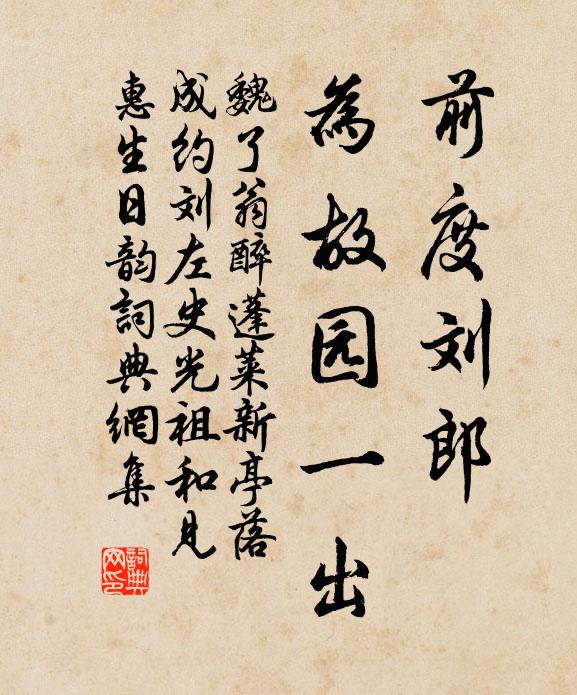 前度刘郎
為故园一出
魏了翁醉蓬莱新亭落
成约刘左史光祖和见
惠生日韵詞典網集
詞典
网印